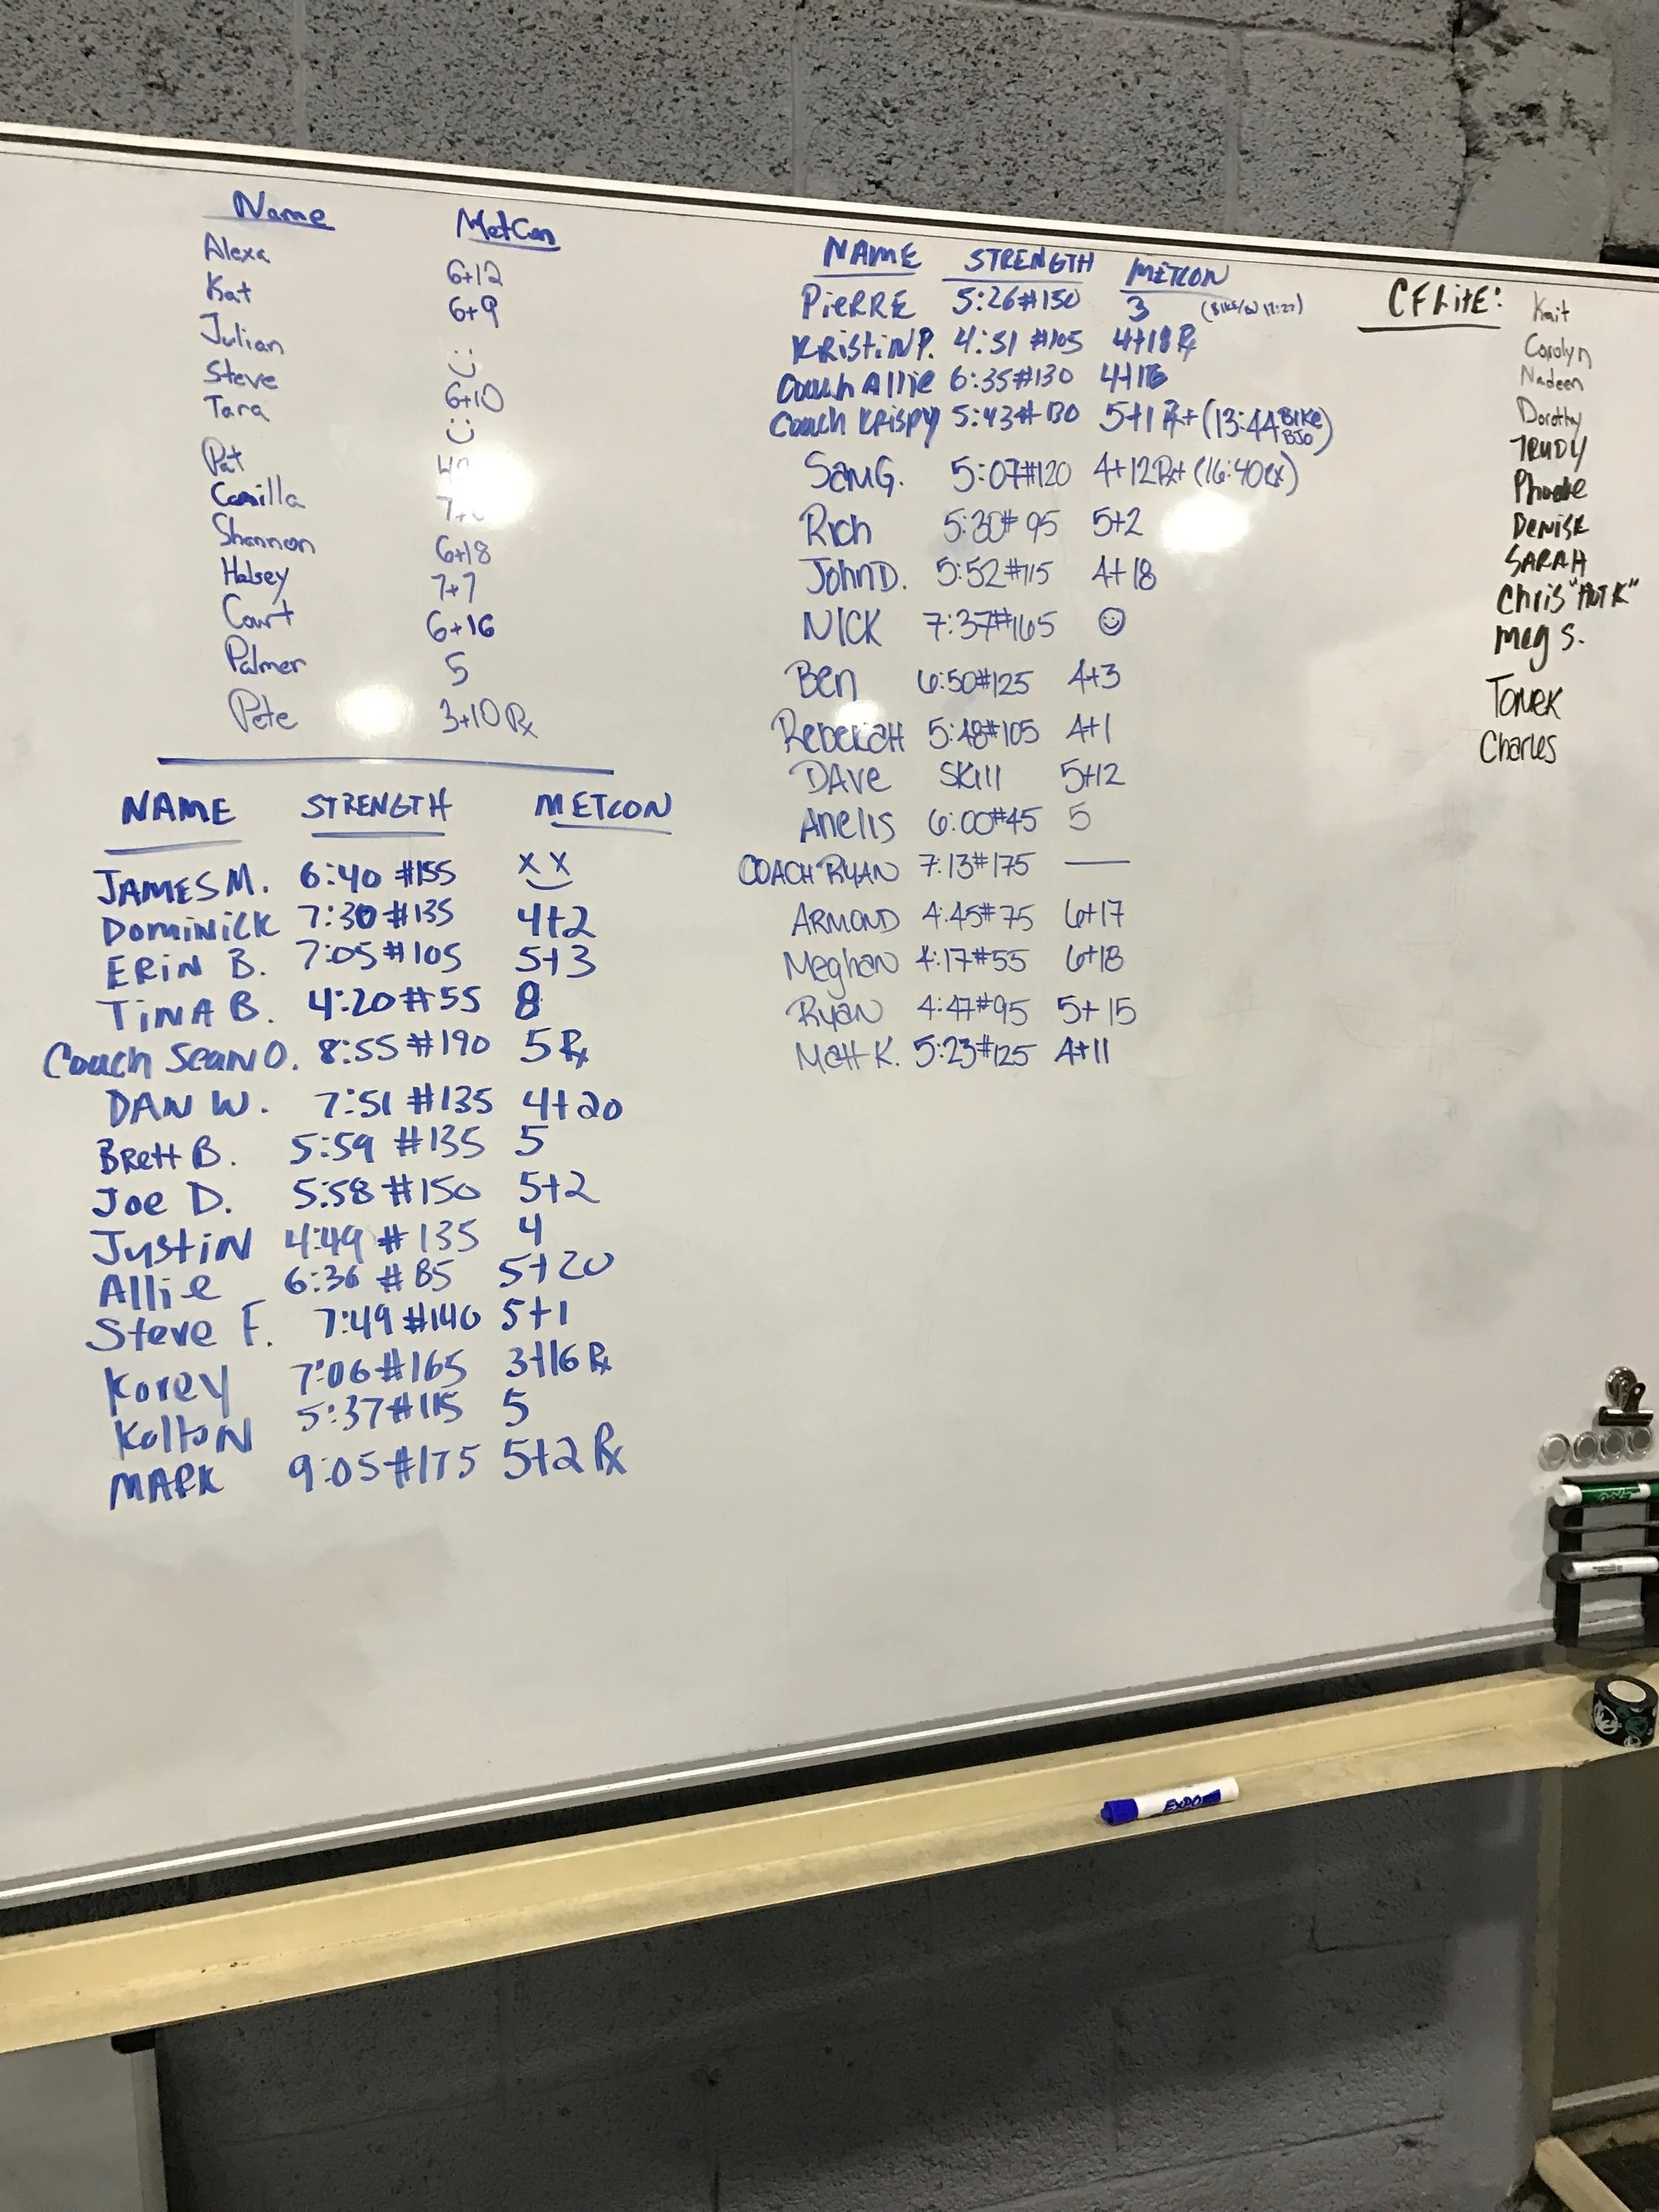 Name MetCon
Alexa 6+12
Kat 6+9
Julian
Steve 6+10
Tara
Pat
Camilla
Shannon 6+18
Halsey 7+7
Court 6+16
Palmer 5
Pete 3+10 Rx
NAME STRENGTH METCON
JAMES M. 6:40 #155 x x
Dominick 7:30 #135 4+2
ERIN B. 7:05 #105 5+3
TINA B. 4:20 #55 8
Coach Sean O. 8:55 #190 5 Rx
DAN W. 7:51 #135 4+20
Brett B. 5:59 #135 5
Joe D. 5:58 #150 5+2
Justin 4:49 #135 4
Allie 6:36 #85 5+20
Steve F. 7:49 #140 5+1
Korey 7:06 #165 3+16 Rx
Kolton 5:37 #115 5
MARK 9:05 #175 5+2 Rx
NAME STRENGTH METCON
PIERRE 5:26 #150 3
KRISTIN P. 4:51 #105 4+18 Rx
Coach Allie 6:35 #130
Coach Krispy 5:43 #130 5+1 Rx+ (13:44 BIKE BJO)
Sam G. 5:07 #120 4+12 Rx+ (16:40 Rx)
Rich 5:30 #95 5+2
John D. 5:52 #115 4+18
NICK 7:37 #165 ☺
Ben 6:50 #125 4+3
Rebekah 5:48 #105 4+1
DAve SKill 5+12
Anelis 6:00 #45 5
COACH RYAN 7:13 #175 —
ARMOND 4:45 #75 6+17
Meghan 4:17 #55 6+18
Ryan 4:47 #95 5+15
Matt K. 5:23 #125 4+11
CF LITE:
Kait
Carolyn
Nadeen
Dorothy
TRUDY
Phoebe
Denise
SARAH
Chris
Meg S.
Tomek
Charles
EXPO